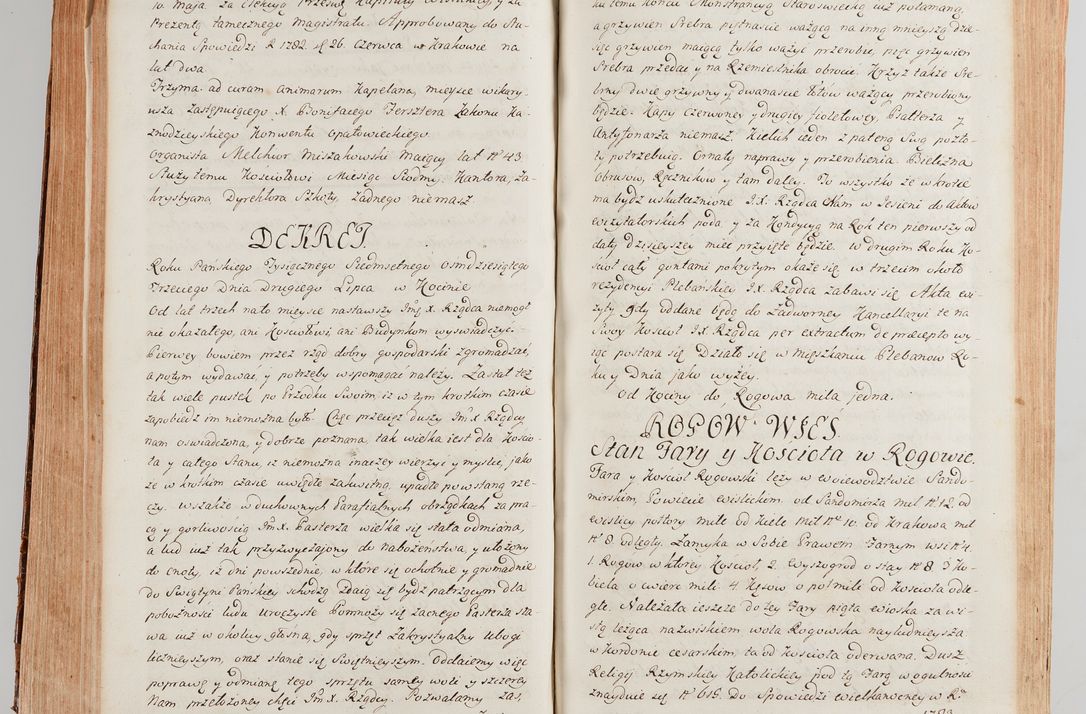 10. Maja za Elekcyą
Prezentą tamecznego Magistratu. Approbowany do Słu-
chania Spowiedzi R 1782. d 26. Czerwca w Krakowie na
lat dwa.
Trzyma ad curam animarum Kapelana, mieysce wikary-
usza Zastępuiącego X. Bonifacego Fersztera Zakonu Ka-
znodzieyskiego Konwentu Opatowieckiego.
Organista Melchior Miszakowski Maiący lat N° 43
Służy temu Kościołowi Miesiąc Siodmy. Kantora, Za-
krystyana Dyrektora Szkoły żadnego niemasz.
DEKRET.
Roku Pańskiego Tysiącznego Siedmsetnego osmdziesiątego
Trzeciego Dnia Drugiego Lipca w Kocinie
Od lat trzech nato mieysce nastawszy Jmć X. Rządca niemogł
nic okazałego, ani Kościołowi ani Budynkom wyswiadczyć.
Pierwey bowiem przez rząd dobry gospodarski zgromadzać,
a potym wydawać, y potrzeby wspomagać należy. Zastał też
tak wiele pustek po Przodku Swoim, iż w tym krotkim czasie
zapobiedz im niemożna było. Chęć przecież duszy Jmć X. Rządcy
nam oswiadczona, y dobrze poznana, tak wielka iest dla Kościo-
ła y całego Stanu, iż niemożna inaczey wierzyć y myslić, jako
że w krotkim czasie uwiędłe zakwitną, upadłe powstaną rze-
czy. wszakże w duchownych Parafialnych obrządkach za pra-
cą y gorliwością Jmć X. Pasterza wielka się stała odmiana,
a lud iuż tak przyzwyczajony do nabożeństwa, y ułożony
do cnoty, iż dni powszednie, w które się ochotnie y gromadnie
do Swiątyni Pańskiey schodzą zdaią się bydź patrzącym dla
pobożności ludu uroczyste Pomnoży się zacnego Pasterza sła-
wa iuż w okolicy głosna, gdy sprzęt Zakrystyalny Ubogi
licznieyszym, oraz stanie się Swiętnieyszym. Oddaiemy więc
poprawę y odmianę tego sprzętu samey woli y szczerey
Nam przełożoney chęci Jmć X. Rządcy. Pozwalamy zaś,
ku temu końcu Monstrancyą Staroswiecką iuż połamaną,
a grzywien Srebra piętnascie ważącą na inną mnieyszą dzie-
sięć grzywien maiącą tylko ważyć przerobić, pięć grzywien
Srebra przedać y na Rzemieslnika obrocić. Krzyż także Sre-
brny dwie grzywny y dwanascie łótów ważący przerobiony
będzie. Kapy Czerwoney y drugiey fioletowey, Psałterza y
Antyfonarza niemasz. Kielich ieden z pateną Swą pozło-
ty potrzebuią. Ornaty naprawy y przerobienia. Bielizna
Obrusow, Ręcznikow y tam daley. To wszystko że w krotce
ma bydź uskutecznione J.X. Rządca Nam w Jesieni do Aktow
wizytatorskich poda, y za Kondycyą na Rok ten pierwszy od
daty dzisieyszey mieć przyięte będzie. w drugim Roku Ko-
scioł cały gontami pokrytym okaże się w trzecim około
rezydencyi Plebańskiey J.X. Rządca zabawi się. Akta wi-
zyty gdy oddane będą do Zadworney Kancellaryi te na
Swoy Koscioł J.X. Rządca per extractum de præcepto wy-
iąć postara się. Działo się w mieszkaniu Plebanow Ro-
ku y Dnia jako wyżey.
Od Kociny do Rogowa mila jedna.
ROGOW WIEŚ.
Stan Fary y Koscioła w Rogowie.
Fara y Koscioł Rogowski leży w woiewodztwie Sando-
mirskim, Powiecie wislickim. od Sandomirza mil N° 12. od
wislicy połtory mile. Od Kielc mil N° 10. Od Krakowa mil
N° 8. odległy. Zamyka w Sobie Prawem Farnym wsi N° 4.
1. Rogow w ktorey Koscioł, 2. Wyszogrod o stay N° 8. 3 Ko-
biela o cwierć mile. 4. Ksjow o pół mile od koscioła odle-
głe. Należała ieszcze do tey Fary piąta wioska za wi-
słą leżąca nazwiskiem wola Rogowska nayludnieysza
w Kordonie cesarskim, ta od Koscioła oderwana. Dusz
Religij Rzymskiey Katolickiey pod tą Farą w ogulnosci
znayduie się N° 619. Do Spowiedzi wielkanocney w R°